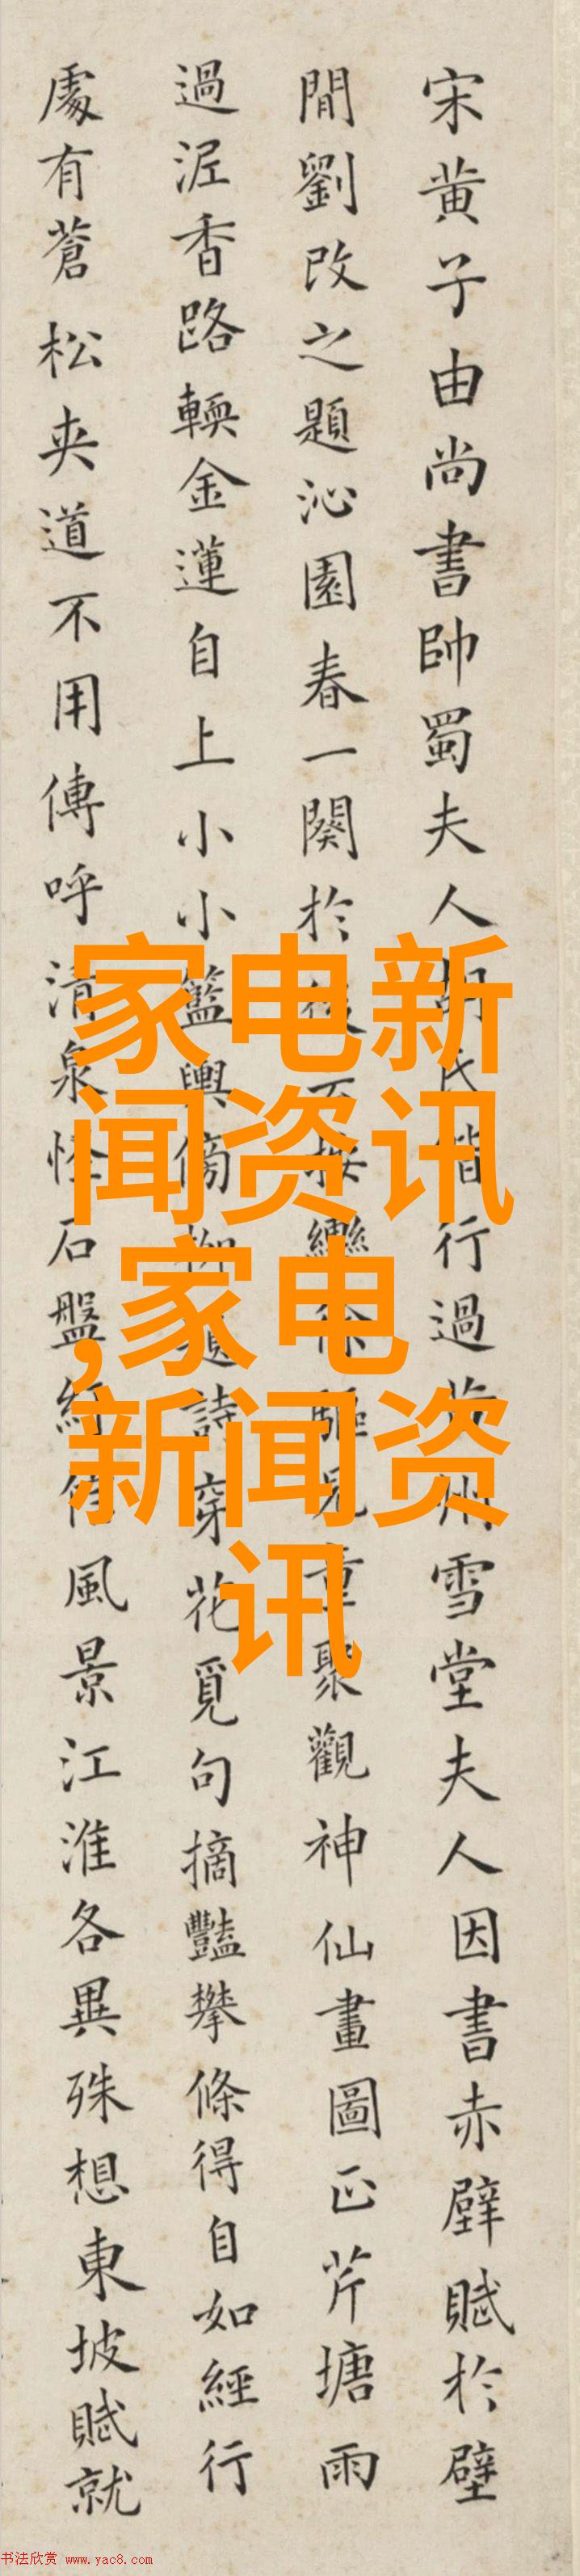 宋黄子由尚書帥蜀夫人胡氏偕行過黄州雪堂夫人因書赤壁賦於壁
間劉改之題沁園春一闋於後按轡徐驅兒童聚觀神仙畫圖正芹塘雨
過泥香路輭金蓮自上小小籃輿傍柳題詩穿花覓句摘豔攀條得自如經行
處有蒼松夾道不用傳呼清泉怪石盤紆信風景江淮各異殊想東坡賦就
家电新
闻资讯
,家电
新闻资
讯
书法欣赏 www.yac8.com